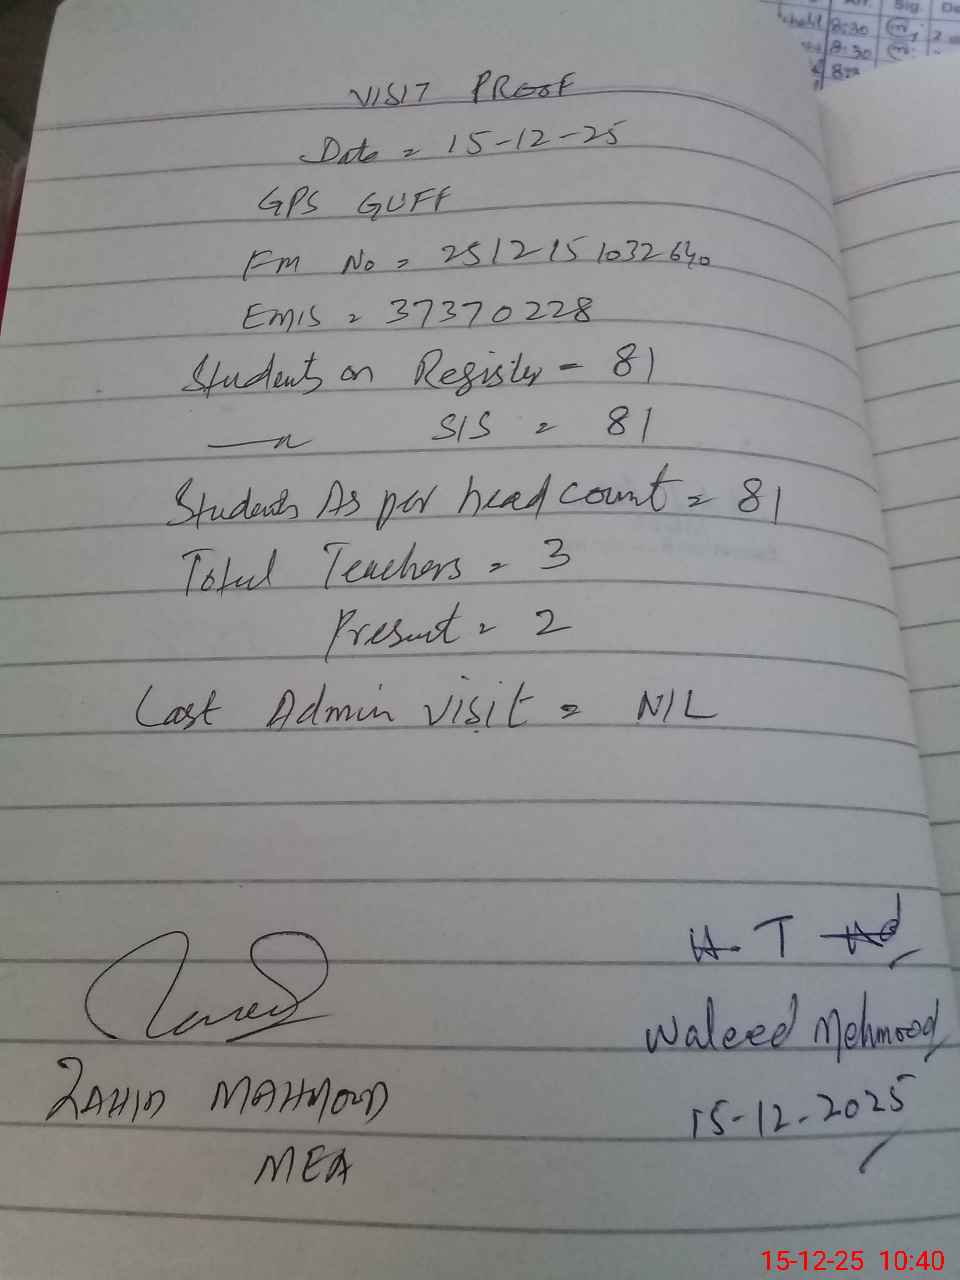 VISIT PROOF
Date = 15-12-25
GPS GUFF
FM No = 2512151032640
EMIS = 37370228
Students on Register = 81
SIS = 81
Students As per head count = 81
Total Teachers = 3
Present = 2
Last Admin visit = NIL
H.T
Waleed Mehmood
15-12-2025
ZAHID MAHMOOD
MEA
Sig.
8:30
8:30
15-12-25 10:40